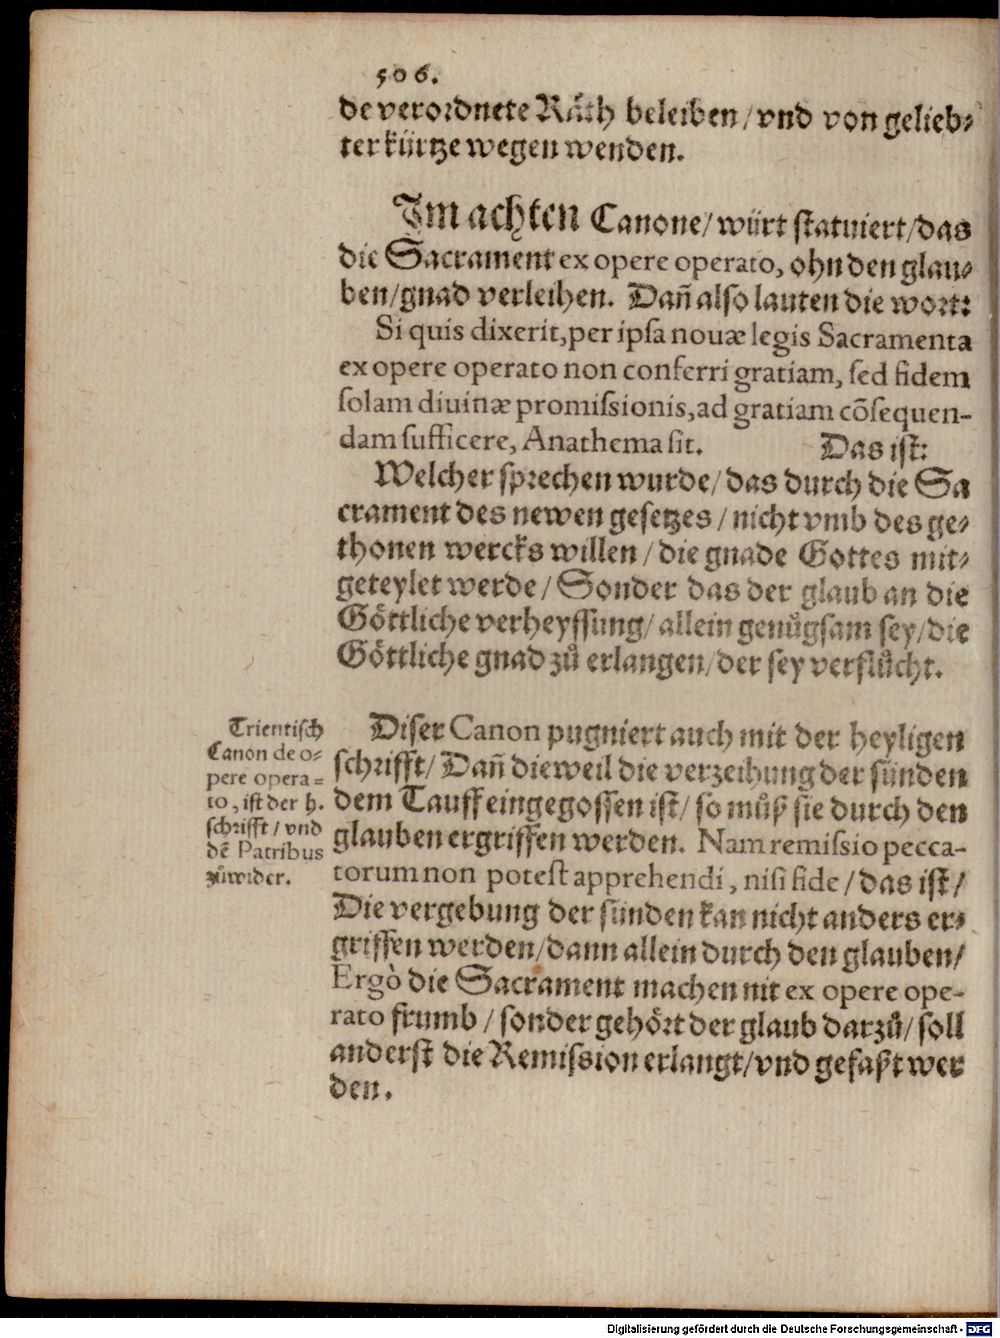 506.
de verordnete Räth beleiben/ vnd von gelieb-
ter kürtze wegen wenden.
Im achten Canone/ würt statuiert/ das
die Sacrament ex opere operato, ohn den glau-
ben/ gnad verleihen. Dañ also lauten die wort:
Si quis dixerit, per ipſa nouæ legis Sacramenta
ex opere operato non conferri gratiam, ſed fidem
ſolam diuinæ promiſsionis, ad gratiam cõſequen-
dam ſufficere, Anathema ſit. Das iſt:
Welcher ſprechen wurde/ das durch die Sa
crament des newen geſetzes/ nicht vmb des ge-
thonen wercks willen/ die gnade Gottes mit-
geteylet werde/ Sonder das der glaub an die
Göttliche verheyſſung/ allein genůgſam ſey/ die
Göttliche gnad zů erlangen/ der ſey verflůcht.
Diſer Canon pugniert auch mit der heyligen
ſchrifft/ Dañ dieweil die verzeihung der ſünden
dem Tauff eingegoſſen iſt/ ſo můß ſie durch den
glauben ergriffen werden. Nam remiſsio pecca-
torum non poteſt apprehendi, niſi fide/ das iſt/
Die vergebung der ſünden kan nicht anders er-
griffen werden/ dann allein durch den glauben/
Ergò die Sacrament machen nit ex opere ope-
rato frumb/ ſonder gehört der glaub darzů/ ſoll
anderſt die Remiſsion erlangt/ vnd gefaßt wer
den.
Trientiſch
Canon de o-
pere opera-
to, iſt der h.
ſchrifft/ vnd
dẽ Patribus
zůwider.
Digitalisierung gefördert durch die Deutsche Forschungsgemeinschaft - DFG